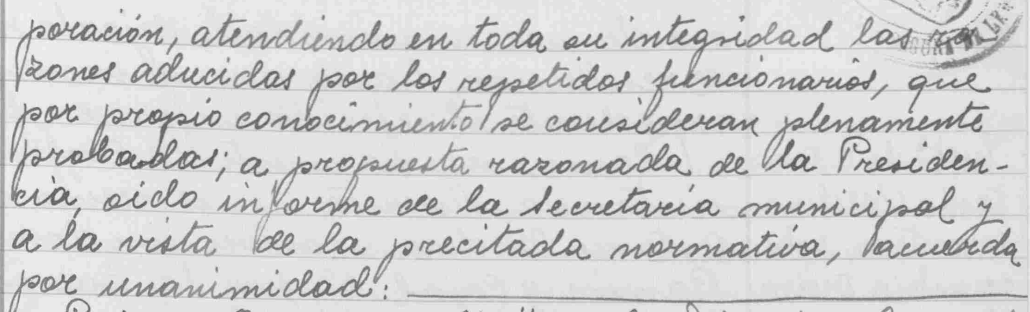 poración, atendiendo en toda su integridad las ra-
zones aducidas por los repetidos funcionarios, que
por propio conocimiento se consideran plenamente
probadas; a propuesta razonada de la Presiden-
cia, oido informe de la Secretaria municipal y
a la vista de la precitada normativa, acuerda
por unanimidad: